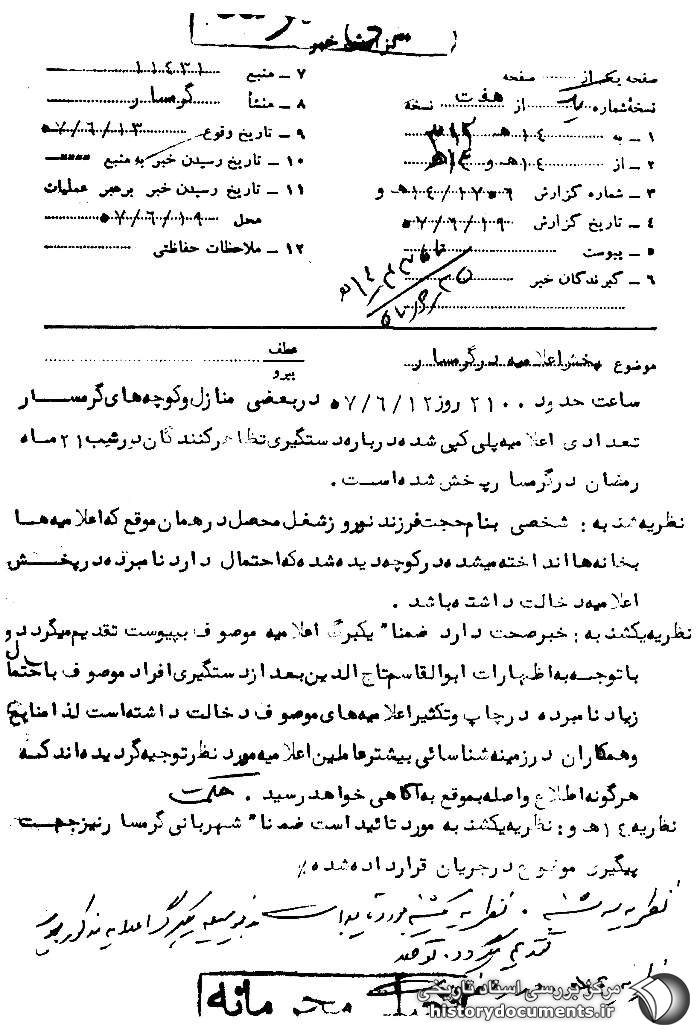 گزارش خبر
صفحه یک از صفحه
نسخهٔ شماره از هفت نسخه
۱ ـ به ۱۴ هـ ۳۱۲
۲ ـ از ۱۴ هـ و
۳ ـ شماره گزارش ۱۷۰۶ / ۱۴ هـ و
۴ ـ تاریخ گزارش ۵۷/۶/۱۹
۵ ـ پیوست
۶ ـ گیرندگان خبر
۷ ـ منبع ۱۱۴۳۱
۸ ـ منشأ گرمسار
۹ ـ تاریخ وقوع ۵۷/۶/۱۳
۱۰ ـ تاریخ رسیدن خبر به منبع
۱۱ ـ تاریخ رسیدن خبر برهبر عملیات
محل ۵۷/۶/۱۹
۱۲ ـ ملاحظات حفاظتی
موضوع پخش اعلامیه در گرمسار
عطف
پیرو
ساعت حدود ۲۱۰۰ روز ۵۷/۶/۱۲ در بعضی منازل و کوچه های گرمسار
تعدادی اعلامیه پلی کپی شده درباره دستگیری تظاهرکنندگان در شب ۲۱ ماه
رمضان در گرمسار پخش شده است .
نظریه شنبه : شخصی بنام حجت فرزند نوروز شغل محصل در همان موقع که اعلامیه ها
بخانه ها انداخته میشده در کوچه دیده شده که احتمال دارد نامبرده در پخش
اعلامیه دخالت داشته باشد .
نظریه یکشنبه : خبر صحت دارد ضمنا" یکبرگ اعلامیه موصوف بپیوست تقدیم میگردد و
با توجه به اظهارات ابوالقاسم تاج الدین بعد از دستگیری افراد موصوف باحتمال
زیاد نامبرده در چاپ و تکثیر اعلامیه های موصوف دخالت داشته است لذا منابع
و همکاران در زمینه شناسائی بیشتر عاملین اعلامیه مورد نظر توجیه گردیده اند که
هرگونه اطلاع واصله بموقع به آگاهی خواهد رسید . حکمت
نظریه ۱۴ هـ و : نظریه یکشنبه مورد تائید است ضمنا" شهربانی گرمسار نیز جهت
پیگیری موضوع در جریان قرار داده شده ٪
نظریه سه شنبه . نظریه یکشنبه مورد تایید است بدینوسیله یکبرگ اعلامیه مذکور
تقدیم میگردد .
محرمانه
مرکز بررسی اسناد تاریخی
historydocuments.ir